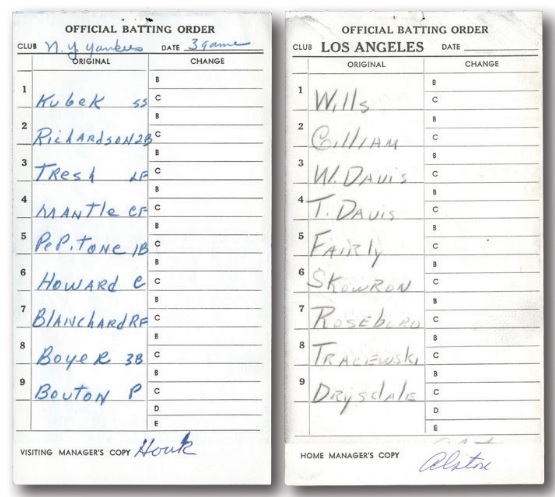 OFFICIAL BATTING ORDER
CLUB N.Y Yankees DATE 3 game
ORIGINAL CHANGE
B
1 Kubek SS C
B
2 Richardson 2B C
B
3 Tresh LF C
B
4 Mantle CF C
B
5 Pepitone 1B C
B
6 Howard C C
B
7 Blanchard RF C
B
8 Boyer 3B C
B
9 Bouton P C
D
E
VISITING MANAGER'S COPY Houk
OFFICIAL BATTING ORDER
CLUB LOS ANGELES DATE
ORIGINAL CHANGE
B
1 Wills C
B
2 Gilliam C
B
3 W. Davis C
B
4 T. Davis C
B
5 Fairly C
B
6 Skowron C
B
7 Roseboro C
B
8 Tracewski C
B
9 Drysdale C
D
E
HOME MANAGER'S COPY Alston